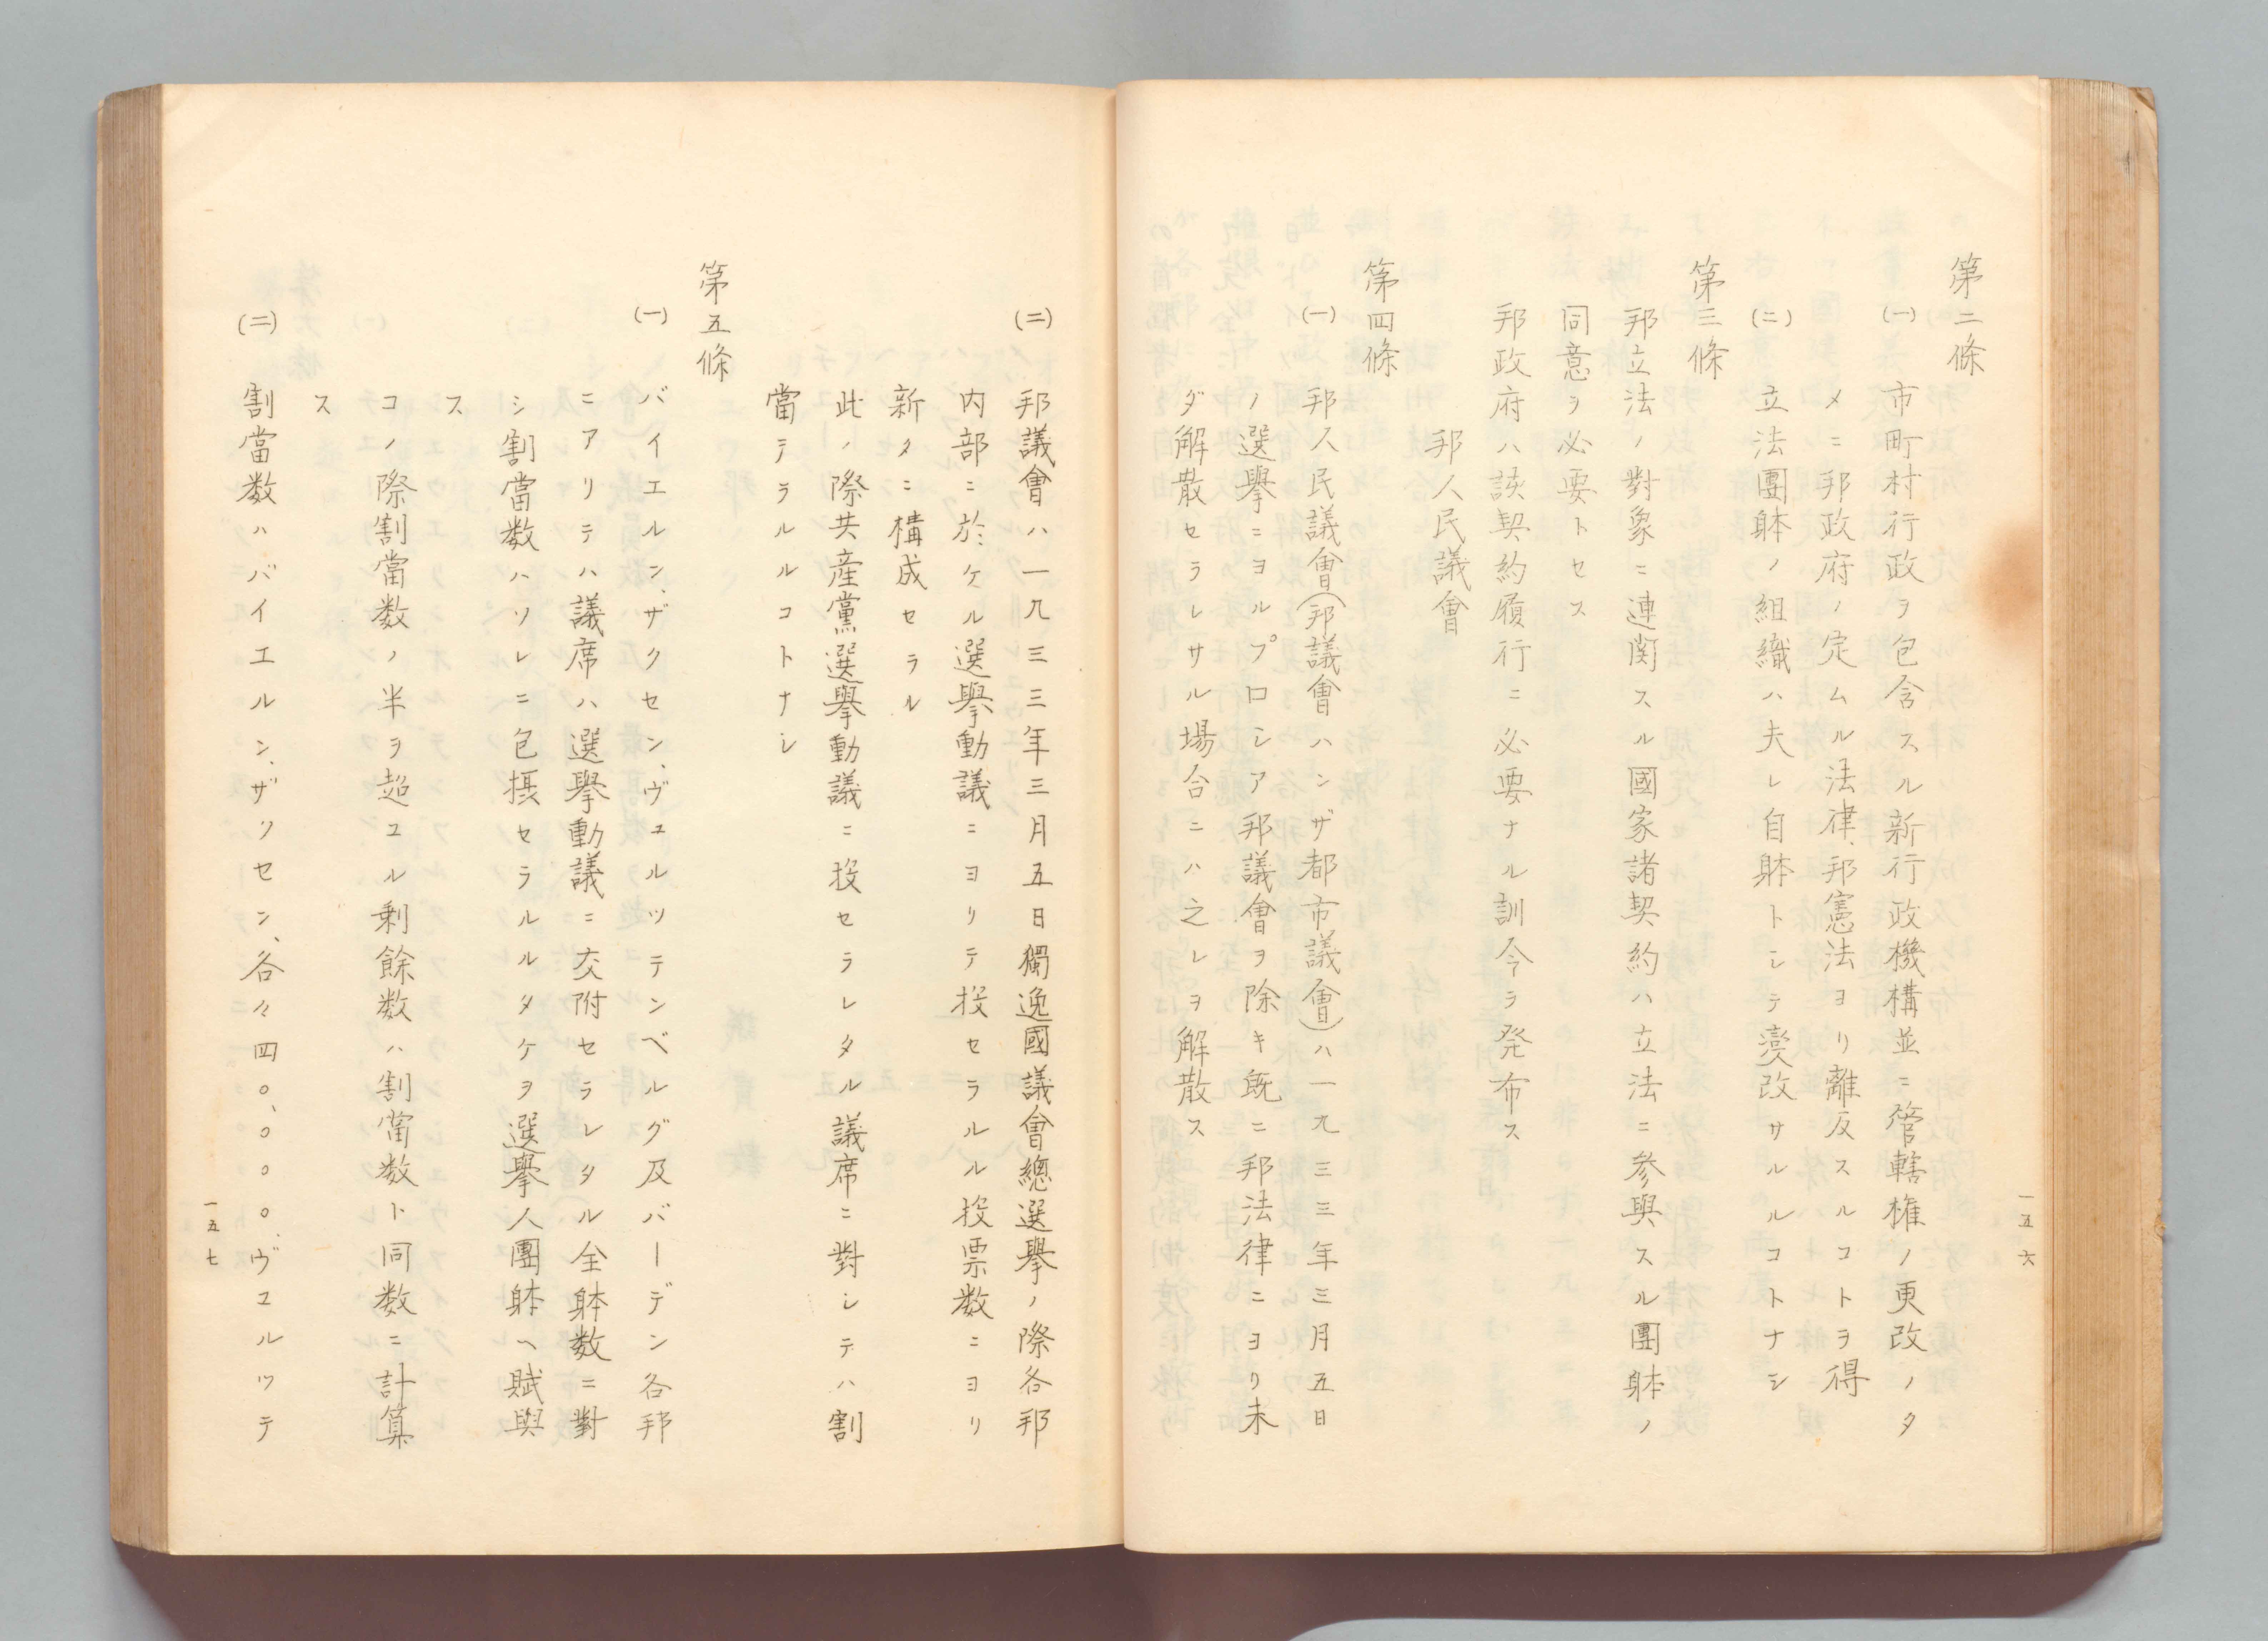 第二條
(一) 市町村行政ヲ包含スル新行政機構並ニ管轄権ノ更改ノタ
メニ邦政府ノ定ムル法律、邦憲法ヨリ離反スルコトヲ得
(ニ) 立法團躰ノ組織ハ夫レ自躰トシテ變改サルルコトナシ
第三條
邦立法ノ對象ニ連関スル國家諸契約ハ立法ニ参與スル團躰ノ
同意ヲ必要トセス
邦政府ハ該契約履行ニ必要ナル訓令ヲ発布ス
邦人民議會
第四條
(一) 邦人民議會(邦議會ハンザ都市議會)ハ一九三三年三月五日
ノ選擧ニヨルプロシア邦議會ヲ除キ既ニ邦法律ニヨリ未
ダ解散セラレサル場合ニハ之レヲ解散ス
一五六
(二) 邦議會ハ一九三三年三月五日獨逸國議會總選擧ノ際各邦
内部ニ於ケル選擧動議ニヨリテ投セラルル投票数ニヨリ
新タニ構成セラル
此ノ際共産黨選擧動議ニ投セラレタル議席ニ對シテハ割
當テラルルコトナシ
第五條
(一) バイエルン、ザクセン、ヴュルッテンベルグ及バーデン各邦
ニアリテハ議席ハ選擧動議ニ交附セラレタル全躰数ニ對
シ割當数ハソレニ包摂セラルルタケヲ選擧人團躰ヘ賦與
ス
コノ際割當数ノ半ヲ超ユル剰餘数ハ割當数ト同数ニ計算
ス
(二) 割當数ハバイエルン、ザクセン、各々四〇、〇〇〇、ヴュルッテ
一五七